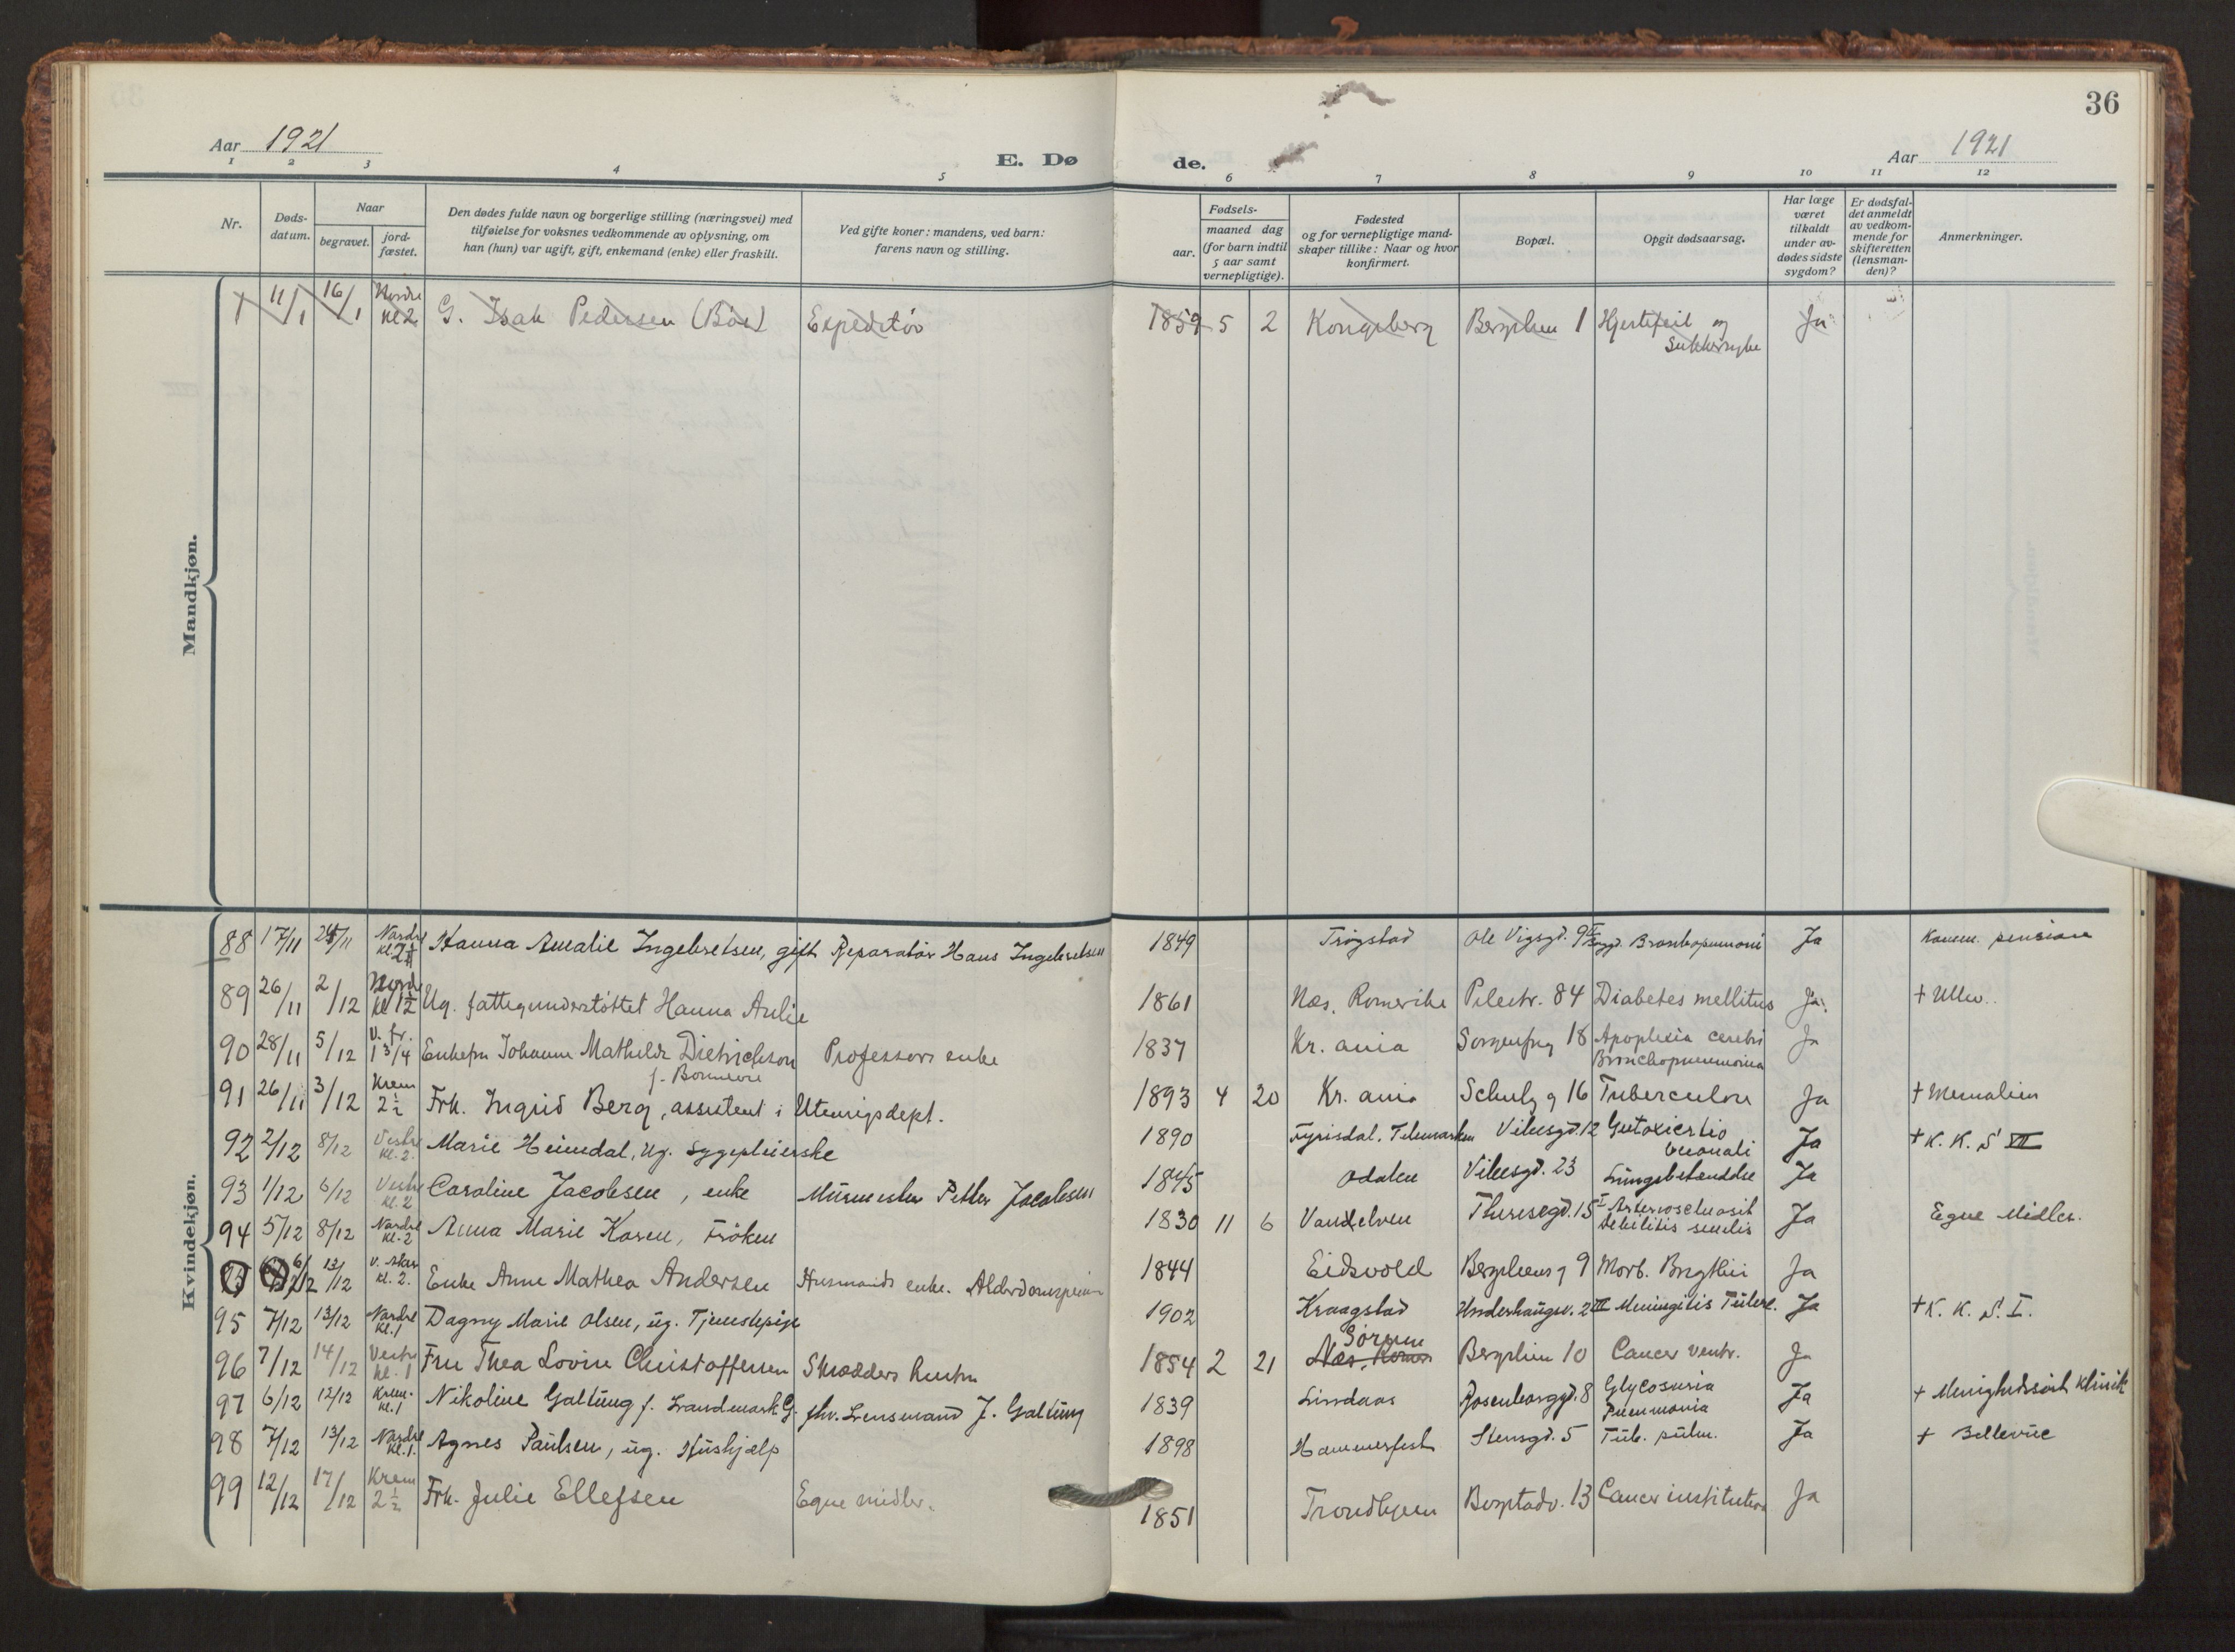 36
Aar 1921
Aar 1921
E. Døde.
1 2 3 4 5 6 7 8 9 10 11 12
Nr.
Døds-
datum.
Naar
begravet.
jord-
fæstet.
Den dødes fulde navn og borgerlige stilling (næringsvei) med
tilføielse for voksnes vedkommende av oplysning, om
han (hun) var ugift, gift, enkemand (enke) eller fraskilt.
Ved gifte koner: mandens, ved barn:
farens navn og stilling.
Fødsels-
aar.
maaned dag
(for barn indtil
5 aar samt
vernepligtige).
Fødested
og for vernepligtige mand-
skaper tillike: Naar og hvor
konfirmert.
Bopæl.
Opgit dødsaarsag.
Har læge
været
tilkaldt
under av-
dødes sidste
sygdom?
Er dødsfal-
det anmeldt
av vedkom-
mende for
skifteretten
(lensman-
den)?
Anmerkninger.
Mandkjøn.
1 11/1 16/1 Nordre kl 2 G. Isak Pedersen (Böe) Expeditör 1859 5 2 Kongsberg Bergslien 1 Hjertefeil og Sukkersyke Ja
Kvindekjøn.
88 17/11 24/11 Nordre kl. 2 Hanna Amalie Ingebretsen, gift Reparatör Hans Ingebretsen 1849 Trögstad Ole Vigsgd. 9 Bronkopneumoni Ja Komm. pension
89 26/11 2/12 Nordre kl 1½ Ug. fattigunderstöttet Hanna Aulie 1861 Nes, Romerike Pilestr. 84 Diabetes mellitus Ja. † Ullev.
90 28/11 5/12 V. fr. 1 3/4 Enkefru Johanne Mathilde Dietrichson f. Bonnevie Professors enke 1837 Kr. ania Sorgenfrig 18 Apoplexia cerebri Bronchopneumonia Ja
91 26/11 3/12 Krem 2½ Frk. Ingrid Berg, assistent i Utenrigsdept. 1893 4 20 Kr. ania Schulz g 16 Tuberculose Ja † Mesnalien
92 2/12 8/12 Vestre kl. 2. Marie Heimdal, ug. Sygepleierske 1890 Fyrisdal, Telemarken Vibesgd. 12 Intoxicatio veronali Ja † K. K. S. VII
93 1/12 6/12 Vestre kl. 2 Caroline Jacobsen, enke Mürmester Petter Jacobsen 1845 Odalen Vibesgd. 23 Lungebetændelse Ja
94 5/12 8/12 Nordre kl. 2 Anna Marie Karen, Fröken 1830 11 6 Vandelven Theresegd. 15 I Arteriosclerosit Debilitis senilis Ja Egne Midler.
6/12 13/12 V. Aker kl. 2. Enke Anne Mathea Andersen Husmands enke. Alderdomspension 1844 Eidsvold Bergsliens g 9 Morb. Brigthii Ja
95 7/12 13/12 Nordre kl. 1 Dagny Marie Olsen, ug. Tjenestepige 1902 Kraagstad Underhaugsv. 2 III Meningitis Tüberc. Ja † K. K. S. I.
96 7/12 14/12 Vestre kl. 1 Fru Thea Lovise Christoffersen Skrædders hustru 1854 2 21 Nes, Romer Sörum Bergslien 10 Cancer ventr. Ja
97 6/12 12/12 Krem. kl. 1 Nikoline Galtüng f. Landmark G. fhv. Lensmand J. Galtüng 1839 Lindaas Rosenborggd. 8 Glycosuria Pneumonia Ja † Menighedssöst. klinik
98 7/12 13/12 Nordre kl. 1. Agnes Paülsen, üg. Hüshjælp 1898 Hammerfest Stensgd. 5 Tüb. pülm. Ja † Bellevüe
99 12/12 17/12 Krem 2½ Frk. Julie Ellefsen Egne midler. 1851 Trondhjem Bogstadv. 13 Cancer Ja